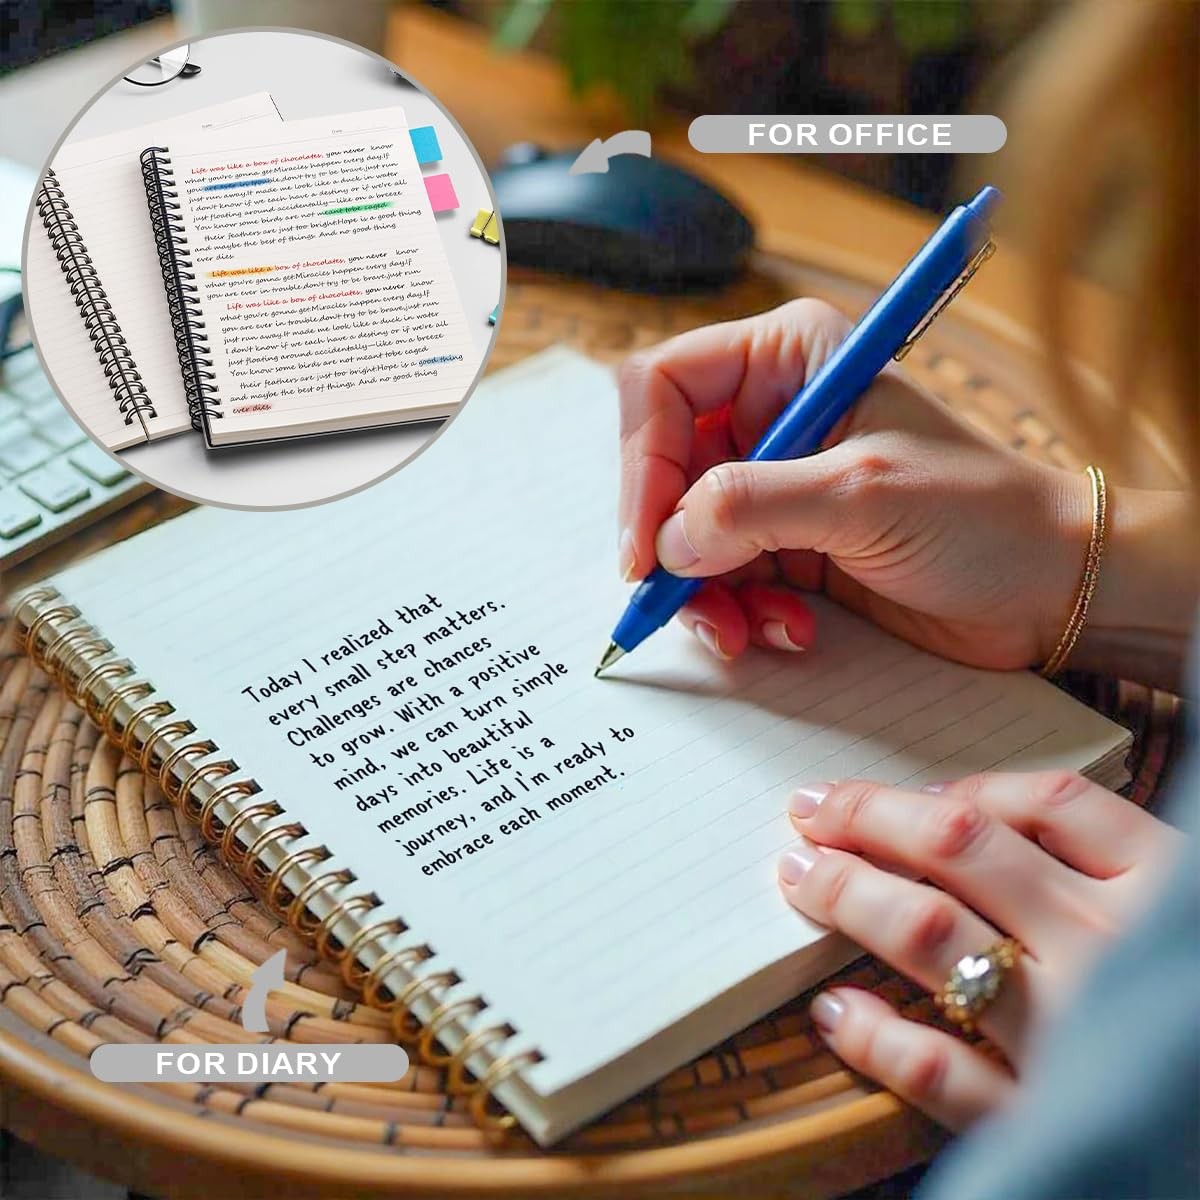 FOR OFFICE
Life was like a box of chocolates, you never know
what you're gonna get.Miracles happen every day.If
you are ever in trouble,don't try to be brave,just run
just run away.It made me look like a duck in water
I don't know if we each have a destiny or if we're all
just floating around accidentally—like on a breeze
You know some birds are not meant to be caged
their feathers are just too bright.Hope is a good thing
and maybe the best of things. And no good thing
ever dies.
Life was like a box of chocolates, you never know
what you're gonna get.Miracles happen every day.If
you are ever in trouble,don't try to be brave,just run
Life was like a box of chocolates, you never know
what you're gonna get.Miracles happen every day.If
you are ever in trouble,don't try to be brave,just run
just run away.It made me look like a duck in water
I don't know if we each have a destiny or if we're all
just floating around accidentally—like on a breeze
You know some birds are not meant to be caged
their feathers are just too bright.Hope is a good thing
and maybe the best of things. And no good thing
ever dies.
Today I realized that
every small step matters.
Challenges are chances
to grow. With a positive
mind, we can turn simple
days into beautiful
memories. Life is a
journey, and I'm ready to
embrace each moment.
FOR DIARY